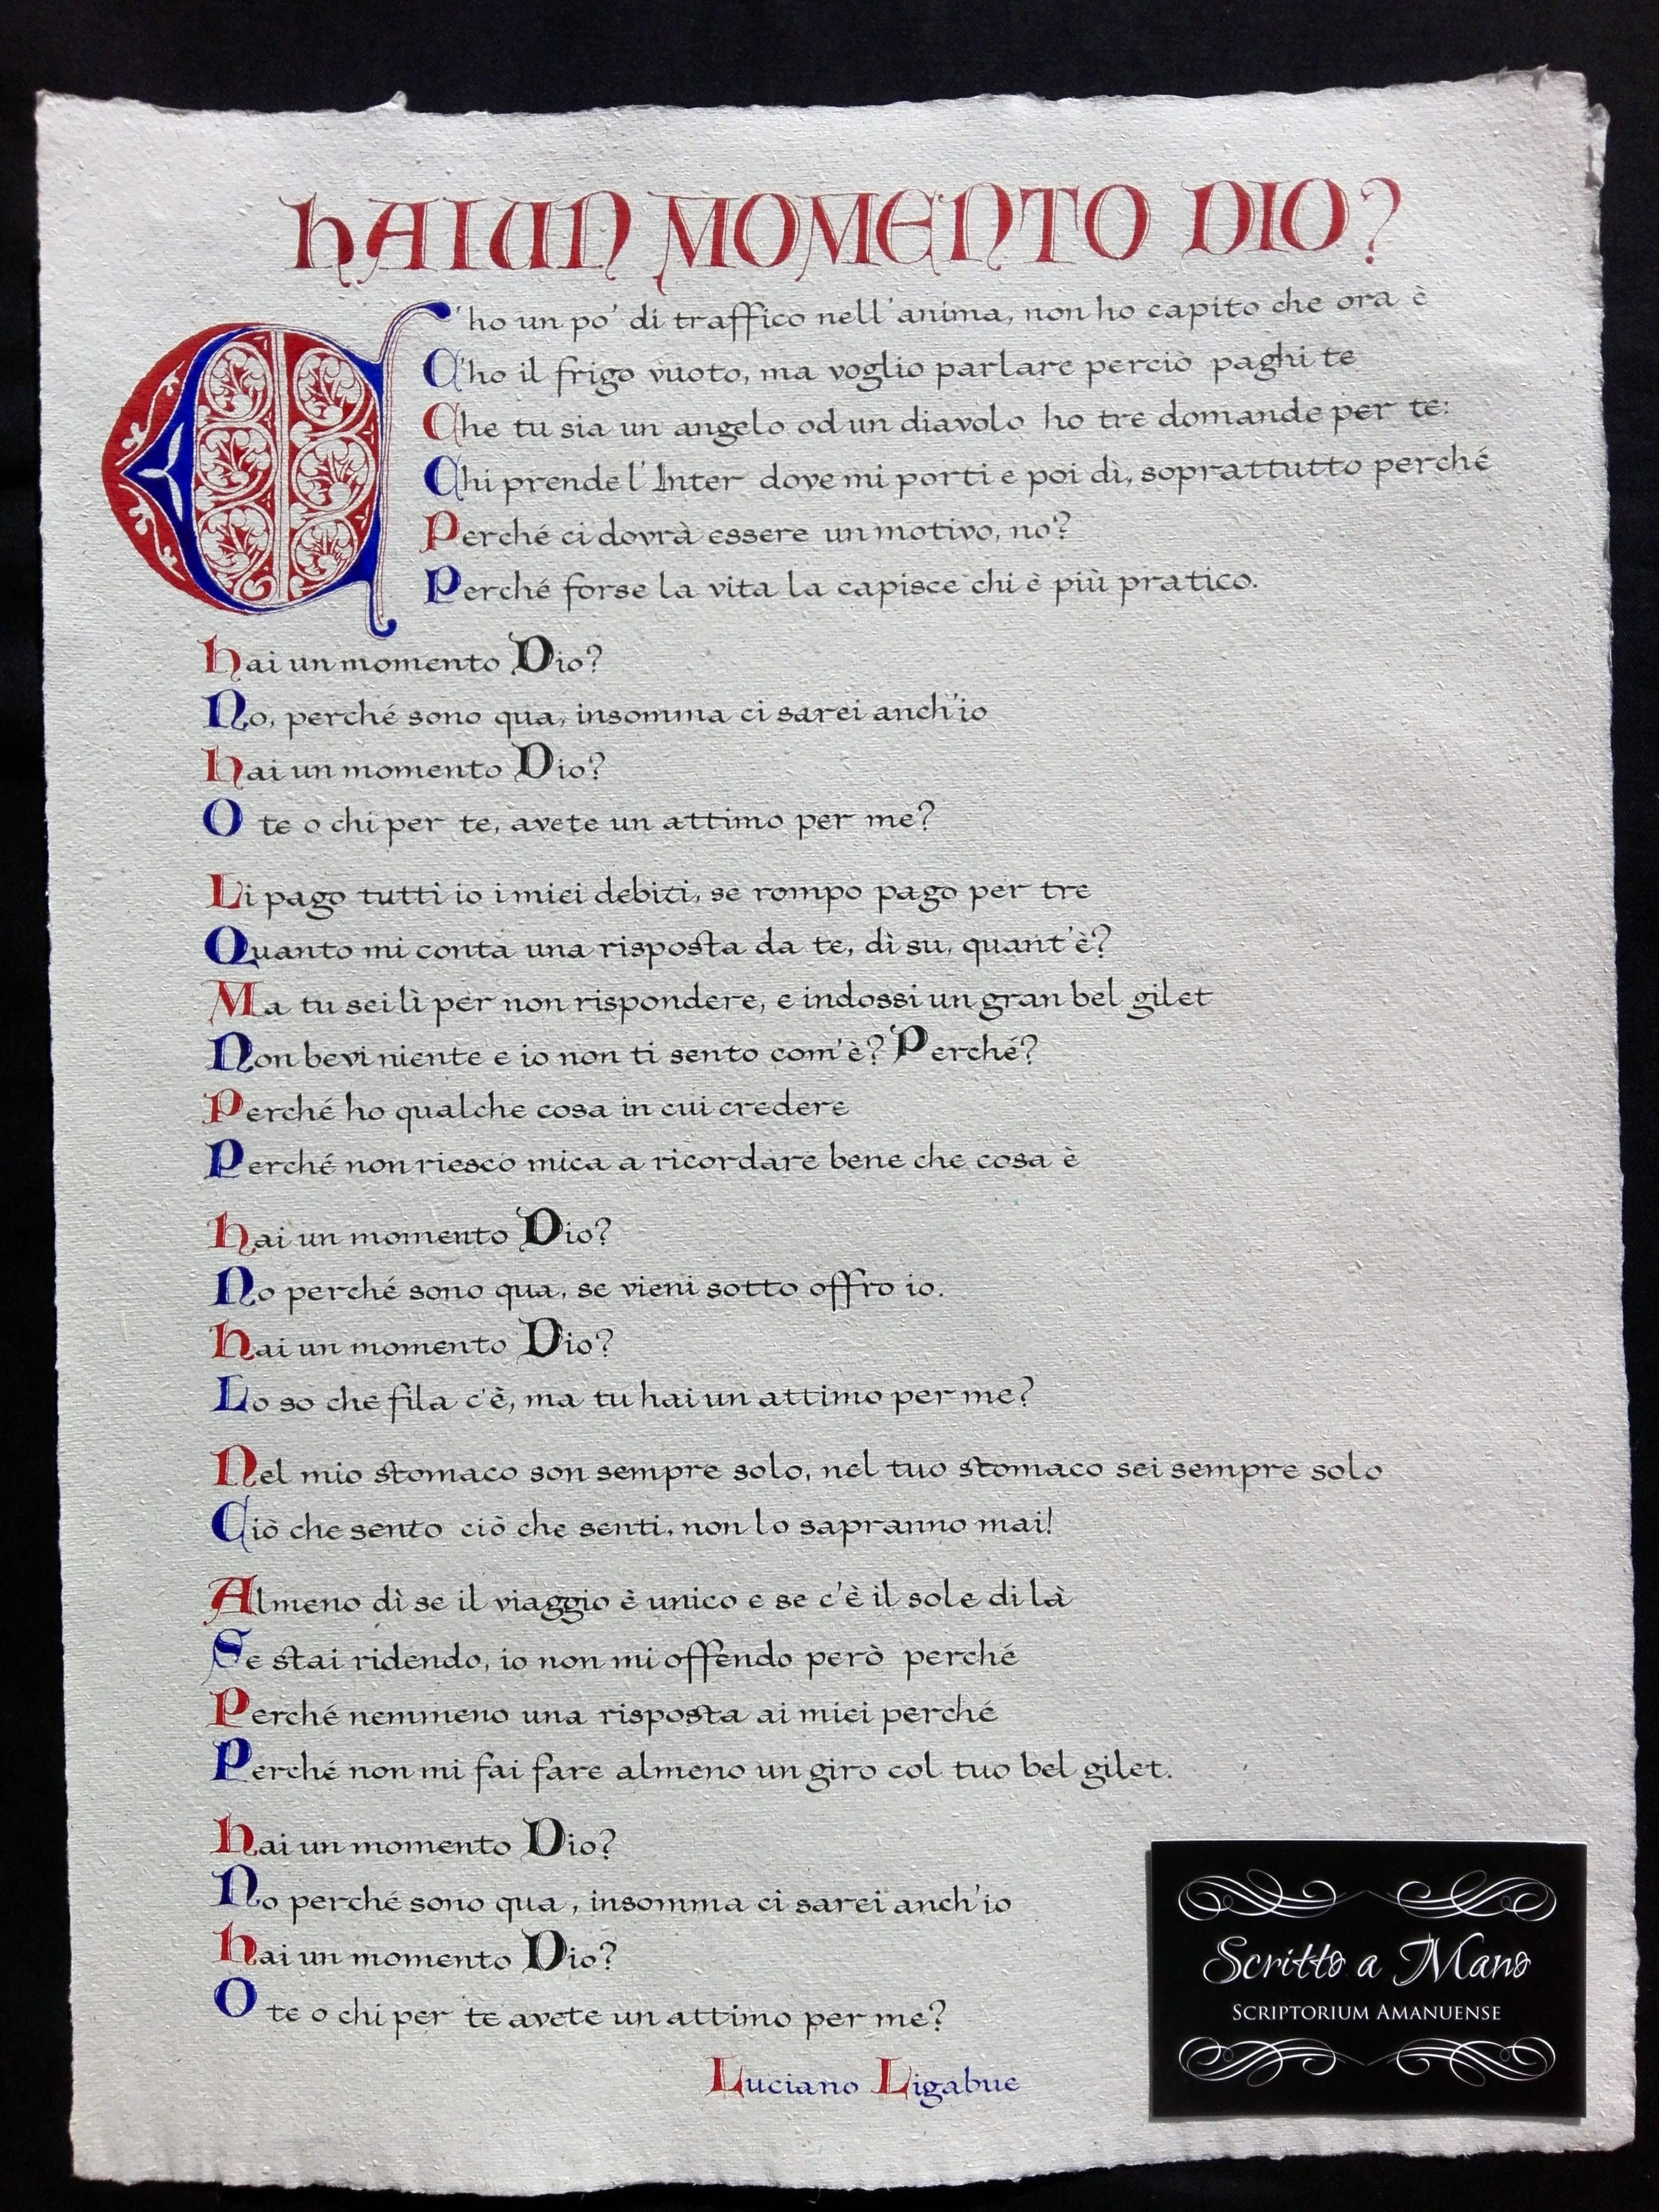 HAI UN MOMENTO DIO?
C'ho un po' di traffico nell'anima, non ho capito che ora è
C'ho il frigo vuoto, ma voglio parlare perciò paghi te
Che tu sia un angelo od un diavolo ho tre domande per te:
Chi prende l'Inter dove mi porti e poi dì, soprattutto perché
Perché ci dovrà essere un motivo, no?
Perché forse la vita la capisce chi è più pratico.
Hai un momento Dio?
No, perché sono qua, insomma ci sarei anch'io
Hai un momento Dio?
O te o chi per te, avete un attimo per me?
Li pago tutti io i miei debiti, se rompo pago per tre
Quanto mi conta una risposta da te, dì su, quant'è?
Ma tu sei lì per non rispondere, e indossi un gran bel gilet
Non bevi niente e io non ti sento com'è? Perché?
Perché ho qualche cosa in cui credere
Perché non riesco mica a ricordare bene che cosa è
Hai un momento Dio?
No perché sono qua, se vieni sotto offro io.
Hai un momento Dio?
Lo so che fila c'è, ma tu hai un attimo per me?
Nel mio stomaco son sempre solo, nel tuo stomaco sei sempre solo
Ciò che sento ciò che senti, non lo sapranno mai!
Almeno dì se il viaggio è unico e se c'è il sole di là
Se stai ridendo, io non mi offendo però perché
Perché nemmeno una risposta ai miei perché
Perché non mi fai fare almeno un giro col tuo bel gilet.
Hai un momento Dio?
No perché sono qua, insomma ci sarei anch'io
Hai un momento Dio?
O te o chi per te avete un attimo per me?
Luciano Ligabue
Scritto a Mano
SCRIPTORIUM AMANUENSE